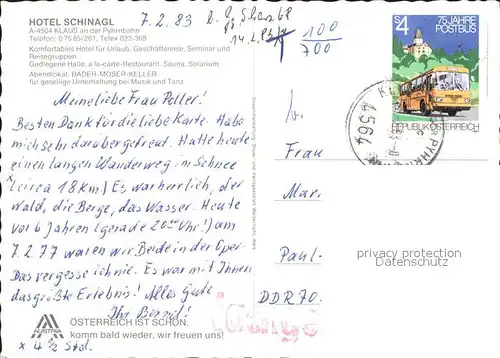 HOTEL SCHINAGL
A-4504 KLAUS an der Pyhrnbahn
Telefon: 0 75 85/261, Telex 023-368
Komfortables Hotel für Urlaub, Geschäftsreise, Seminar und
Reisegruppen
Gediegene Halle, a la-carte-Restaurant, Sauna, Solarium.
Abendlokal BADER-MOSER-KELLER
für gesellige Unterhaltung bei Musik und Tanz
7.2.83
14.2.
T 100
700
S4
75 JAHRE
POSTBUS
REPUBLIK ÖSTERREICH
4564
Meine liebe Frau Peller!
Besten Dank für die liebe Karte. Habe
mich sehr darüber gefreut. Hatte heute
einen langen Wanderweg im Schnee
x (circa 18 km) Es war herrlich, der
Wald, die Berge, das Wasser. Heute
vor 6 Jahren (gerade 20 Uhr!) am
7.2.77 waren wir Beide in der Oper.
Das vergesse ich nie. Es war mit Ihnen
das größte Erlebnis! Alles Gute
Ihr
x 4 1/2 Std.
b.
Frau
Mar.
Paul-
DDR 70.
AUSTRIA
ÖSTERREICH IST SCHÖN,
komm bald wieder, wir freuen uns!
privacy protection
Datenschutz